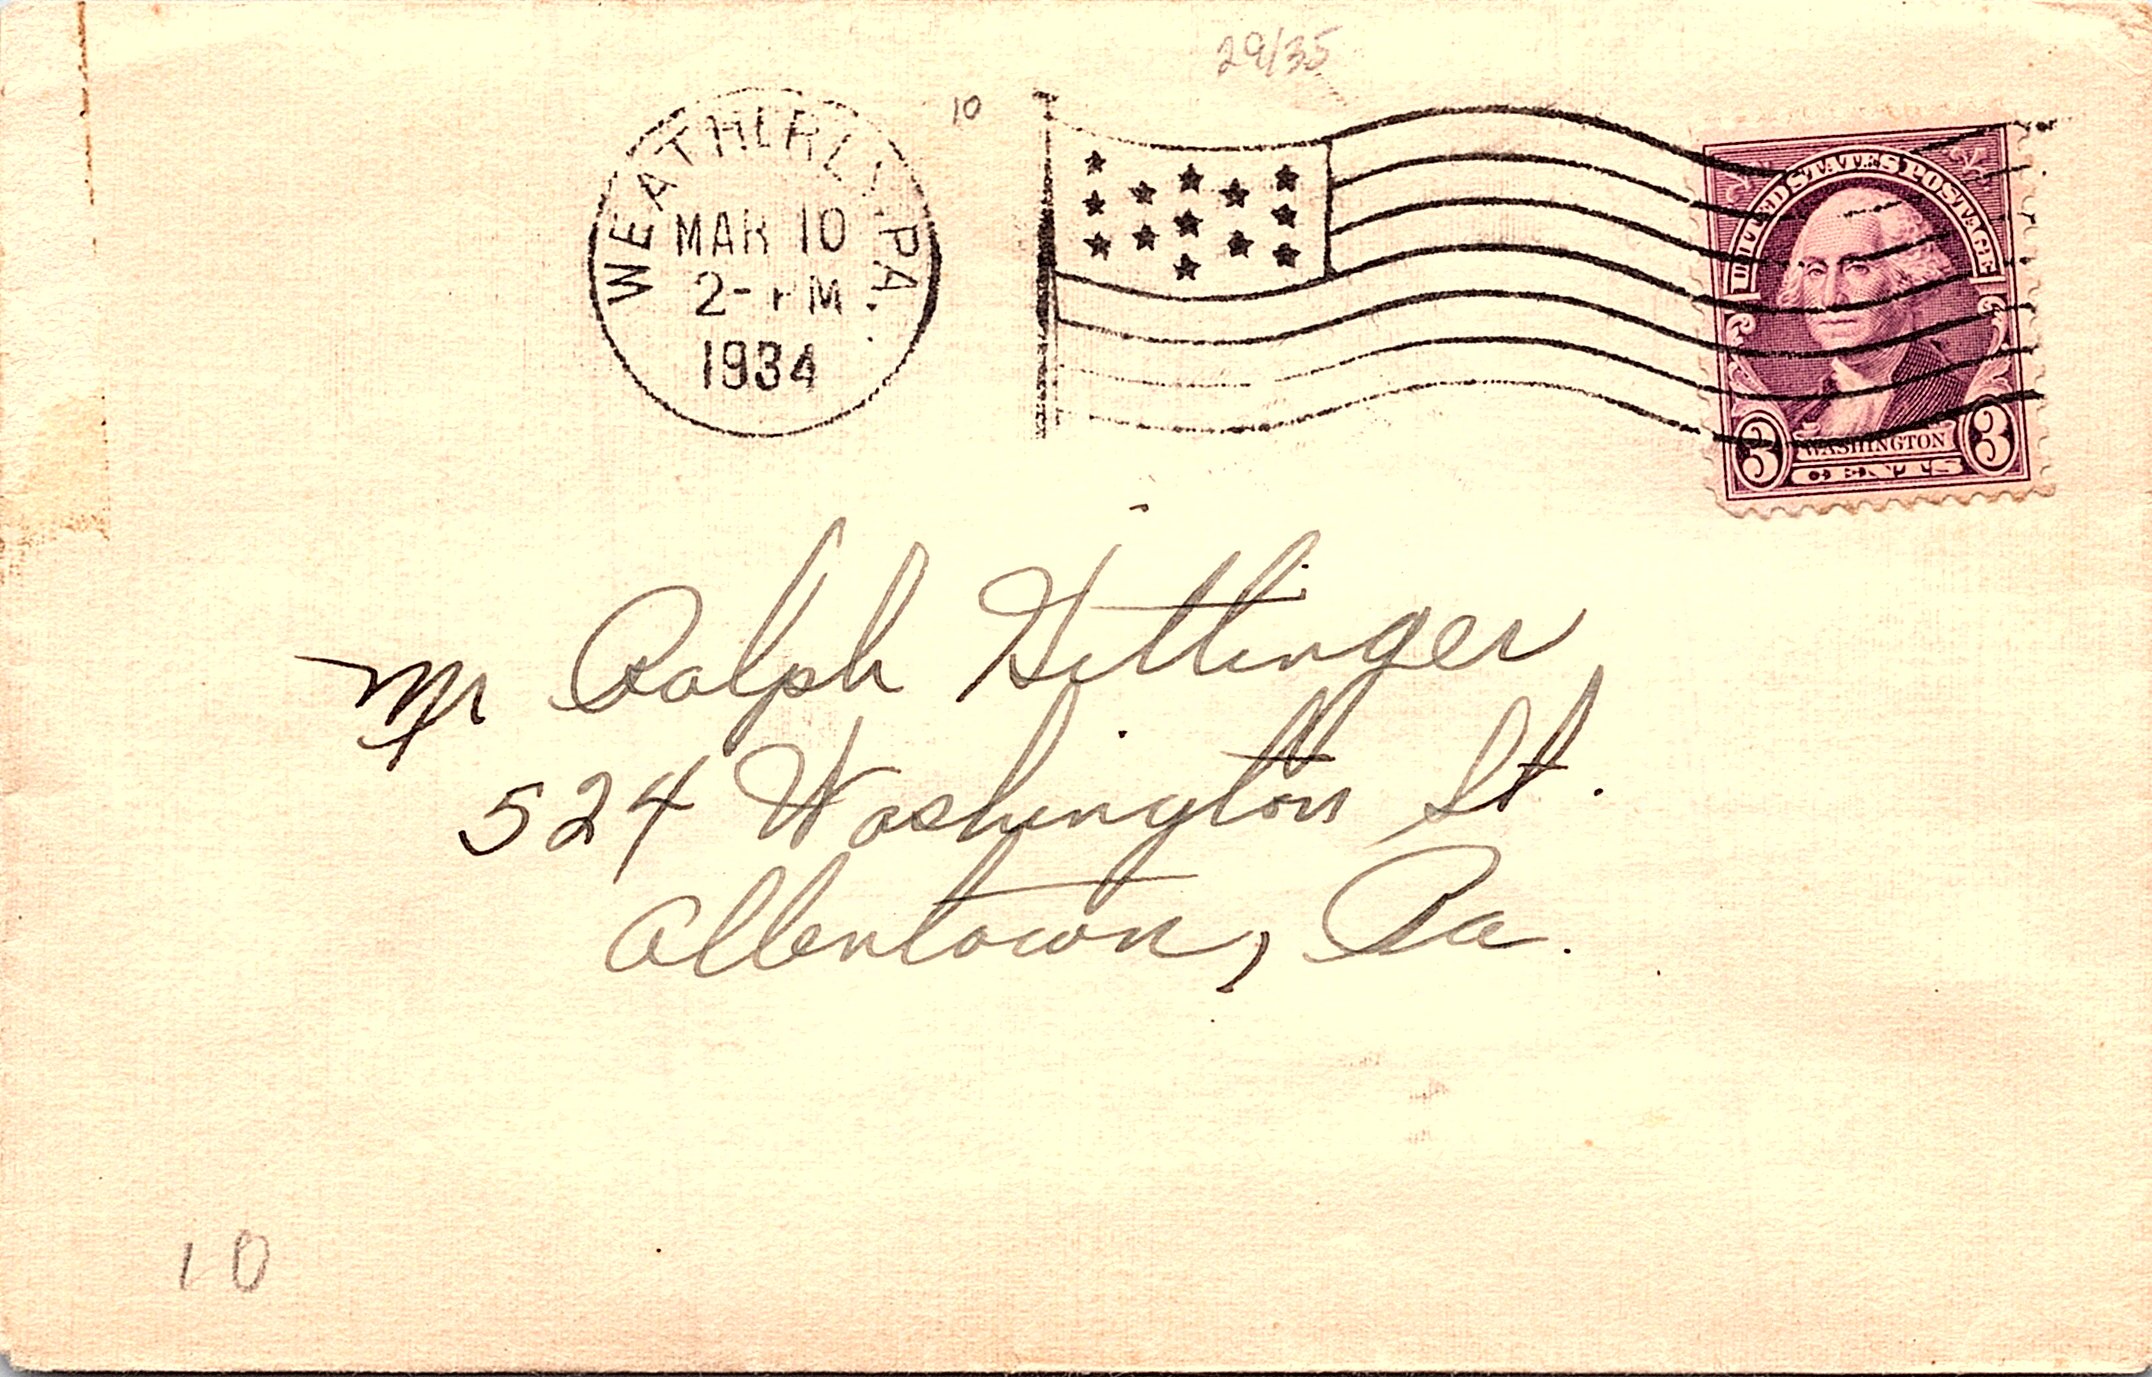 29/35
10
WEATHERLY, PA.
MAR 10
2-PM
1934
UNITED STATES POSTAGE
3 WASHINGTON 3
Mr Ralph Hittinger
524 Washington St.
Allentown, Pa.
10